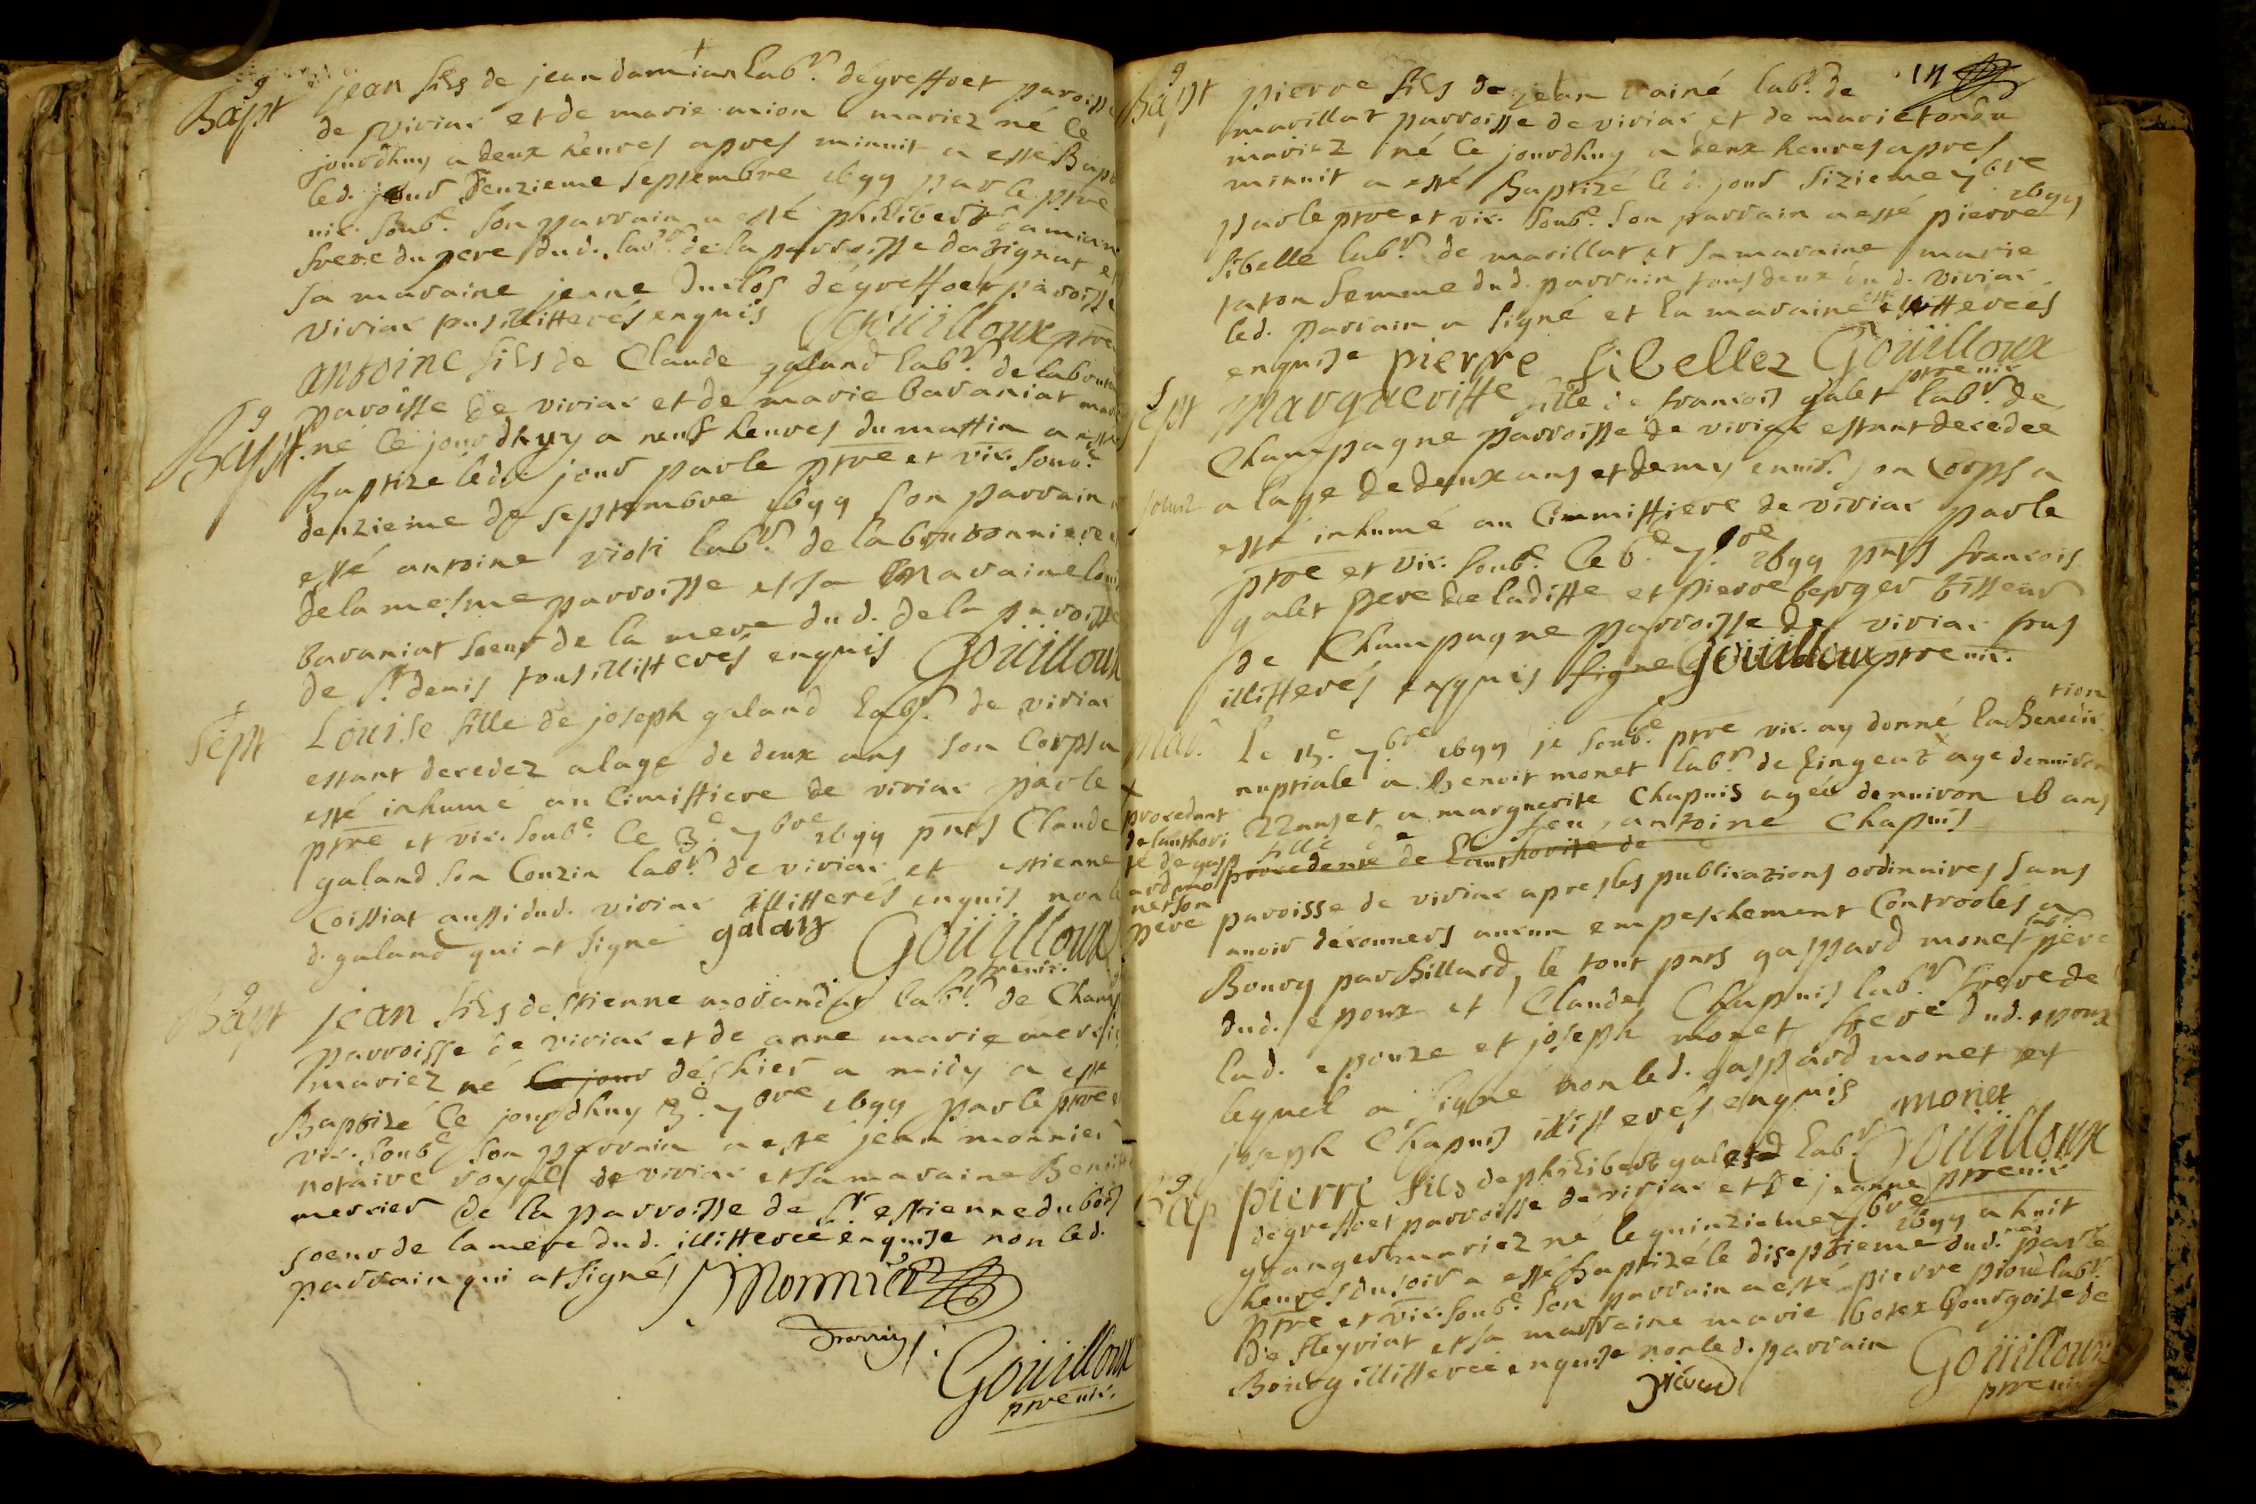 Bapt
Jean fils de jean damian labr. degreffoet paroisse
de viriac et de marie mion mariez né ce
jourdhuy a deux heures apres minuit a esté Bapt
led. jour deuzieme septembre 1699 par le ptre
vic. soubé son parrain a esté philibert damian
frere du pere dud. labr. de la parroisse dazignat et
sa maraine jeane Duclos degreffoet paroisse
viriac tus illitterés enquis Goüilloux ptre
Bapt
antoine fils de Claude galand labr. de labouton
paroisse de viriac et de marie bavaniat mar
né ce jourdhuy a neuf heures du mattin a esté
Baptize led. jour par le ptre et vic. soubé
deuzieme de septembre 1699 son parrain a
esté antoine violi labr. de laboutonniere
de la mesme parroisse et sa maraine lou
bavaniat soeur de la mere dud. de la paroisse
de st denis tous illitterés enquis Goüilloux
Sept
Louise fille de joseph galand labr. de viriac
estant decedez a lage de deux ans son Corps a
esté inhumé au Cimittiere de viriac par le
ptre et vic. soubé. Ce 3e 7bre 1699 pnts Claude
galand son Couzin labr. de viriac et estienne
Coissiat aussi dud. viriac illitterés enquis non le
d. galand qui at signé galanz Goüilloux
ptre vic.
Bapt
jean fils destienne morandat labr. de Champ
parroisse de viriac et de anne marie mercie
mariez né ce jour dés hier a midy a esté
Baptizé Ce jourdhuy 3e 7bre 1699 par le ptre
vic. soubé son parrain a esté jean monnier
notaire royal de viriac et sa maraine Benoit
mercier de la parroisse de st estienne du bois
soeur de la mere dud. illitterée enquise non led.
parrain qui at signé Monnier
Goüilloux
ptre vic.
Bapt
pierre fils de jean lainé labr. de
marillat parroisse de viriac et de marie tondu
mariez né ce jourdhuy a deux heures apres
minuit a esté Baptizé le d. jour sizieme 7bre
1699
par le ptre et vic. soubé son parrain a esté pierre
sibelle labr. de marillat et sa maraine marie
taton femme dud. parrain tous deux dud. viriac
led. parrain a signé et la maraine est illitterées
enquise pierre sibellez Goüilloux
ptre vic
Sept
Margueritte fille de francois galet labr. de
Champagne parroisse de viriac estant decedee
a lage de deux ans et demy enuir. son Corps a
esté inhumé au Cimmittiere de viriac par le
ptre et vic. soubé. Ce 6e 7bre 1699 pnts francois
galet pere de laditte et pierre berger tisseur
de Champagne parroisse de viriac tous
illitterés enquis signe Goüilloux ptre vic.
Mar.
Le 15e 7bre 1699 je soubé ptre vic. ay donné la Benedic
tion
nuptiale a Benoit monet labr. de lingeat age denuiron
procedant
de lauthori
té de gasp
ard mo
net son
pere
22 ans et a marguerite Chapuis agée denuiron 18 ans
fille de feu antoine Chapuis
procedente de lauthorite de
paroisse de viriac apres les publications ordinaires sans
auoir decouuers aucun empeschement Controolés a
Bourg par Billard, le tout pnts gaspard monet labr. pere
dud. epoux et Claude Chapuis labr. frere de
lad. epouze et joseph monet frere dud. epoux
lequel a signe non led. gaspard monet ny
joseph Chapuis illitterés enquis monet
Goüilloux
ptre vic
Bap
pierre fils de philibert galand labr.
degreffoet parroisse de viriac et de jeanne
granger mariez né le quinzieme 7bre 1699 a huit
heures du soir a esté Baptizé le diseptieme dud. mois par le
ptre et vic. soubé. son parrain a esté pierre pioud labr.
de fleyriat et sa marraine marie botex bourgoise de
Bourg illitterée enquise non led. parrain
pioud
Goüilloux
ptre vic